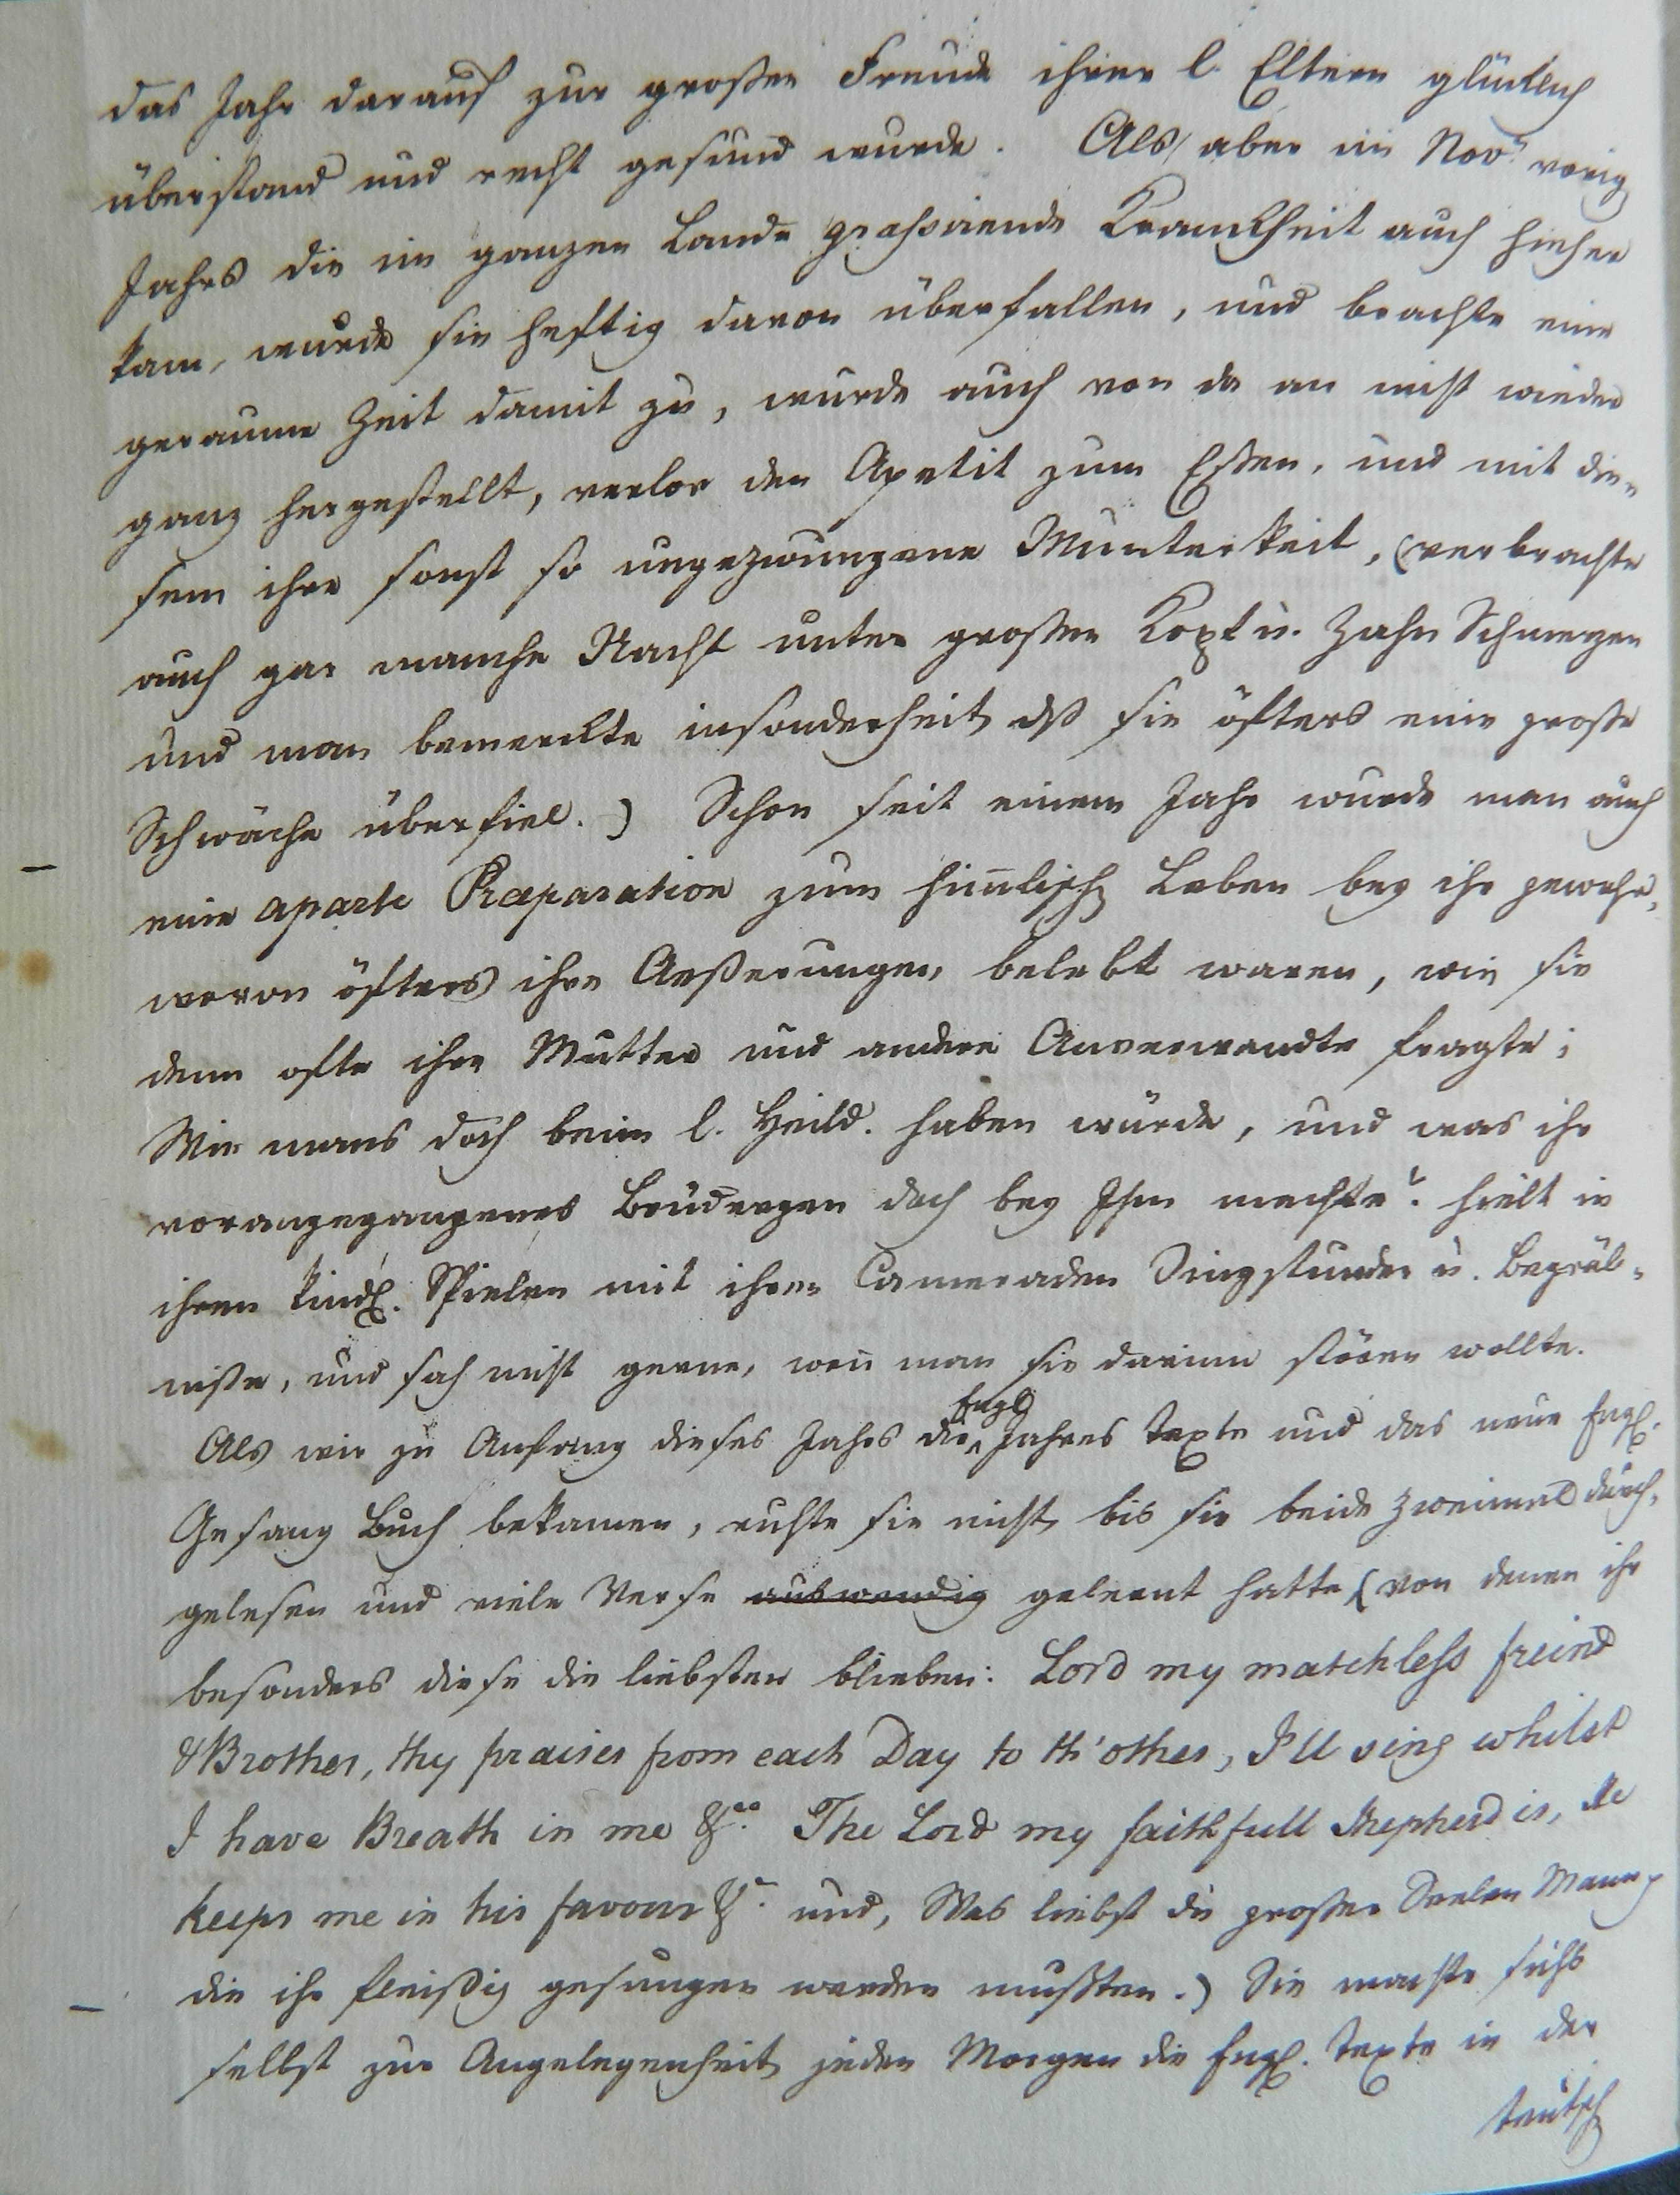 das Jahr darauf zur großen Freude ihrer l. Eltern glücklich
überstand und recht gesund wurde. Als aber im Novr vorig
Jahrs die im ganzen Lande grassirende Kranckheit auch hieher
kam, wurde sie heftig davon überfallen, und brachte eine
geraume Zeit damit zu, wurde auch von da an nicht wieder
ganz hergestellt, verlor den Apetit zum Eßen, und mit die„
sem ihre sonst so ungezwungene Munterkeit, (verbrachte
auch gar manche Nacht unter großen Kopf u. Zahn Schmerzen
und man bemerckte insonderheit, dß sie öfters eine große
Schwäche überfiel.) Schon seit einem Jahr wurde man auch
eine aparte Præparation zum himlisch Leben bey ihr gewahr,
wovon öfters ihre Aeßerungen belebt waren, wie sie
denn ofte ihre Mutter und andere Anverwandte fragte;
Wie mans doch beim l. Heild. haben würde, und was ihr
vorangegangenes Brüdergen doch bey Ihm machte? hielt in
ihren kindl. Spielen mit ihren Cameraden Singstunden u. Begräb„
niße, und sah nicht gerne, weñ man sie darinn stören wollte.
Als wir zu Anfang dieses Jahrs die Engl Jahres Texte und das neue Engl.
Gesang Buch bekamen, ruhte sie nicht, bis sie beide zweimal durch„
gelesen und viele Verse auswendig gelernt hatte (von denen ihr
besonders diese die liebsten blieben: Lord my matchless freind
& Brother, thy praises from each Day to th'other, I'll sing whilst
I have Breath in me &c. The Lord my faithfull Shepherd is, He
keeps me in his favour &c. und, Was liebst du großer Seelen Mann,
die ihr fleißig gesungen werden mußten.) Sie machte sichs
selbst zur Angelegenheit, jeden Morgen die Engl. Texte in der
teutsch